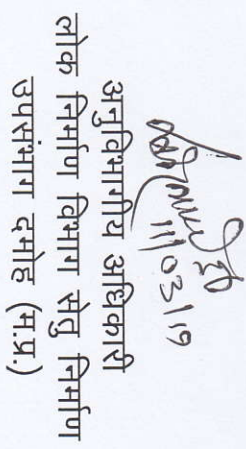 11/03/19
अनुविभागीय अधिकारी
लोक निर्माण विभाग सेतु निर्माण
उपसंभाग दमोह (म.प्र.)